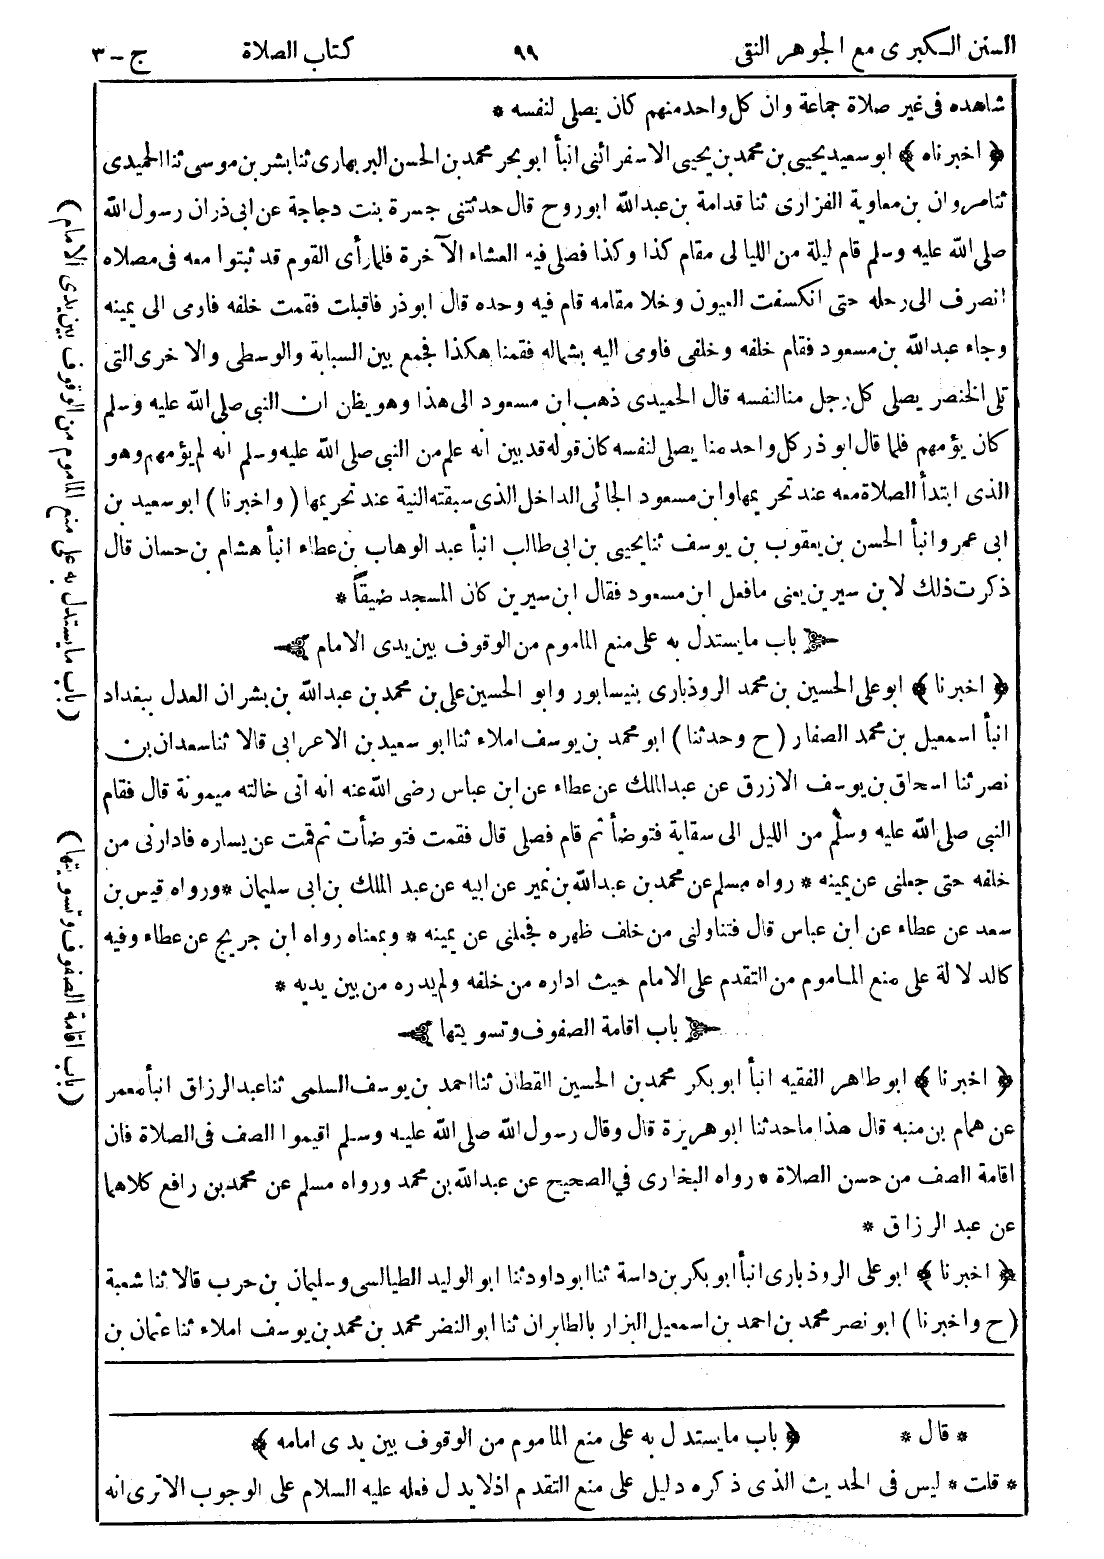 السنن الكبرى مع الجوهر النقى ٩٩ كتاب الصلاة ج - ٣
شاهده فى غير صلاة جماعة وان كل واحد منهم كان يصلى لنفسه *
﴿ اخبرناه ﴾ ابو سعيد يحيى بن محمد بن يحيى الاسفرائنى انبأ ابو بحر محمد بن الحسن البربهارى ثنا بشر بن موسى ثنا الحميدى
ثنا مروان بن معاوية الفزارى ثنا قدامة بن عبد الله ابو روح قال حدثتنى جسرة بنت دجاجة عن ابى ذر ان رسول الله
صلى الله عليه وسلم قام ليلة من الليالى مقام كذا وكذا فصلى فيه العشاء الآخرة فلما رأى القوم قد ثبتوا معه فى مصلاه
انصرف الى رحله حتى انكسفت العيون وخلا مقامه قام فيه وحده قال ابو ذر فاقبلت فقمت خلفه فاومى الى يمينه
وجاء عبد الله بن مسعود فقام خلفه وخلفى فاومى اليه بشماله فقمنا هكذا فجمع بين السبابة والوسطى والاخرى التى
تلى الخنصر يصلى كل رجل منا لنفسه قال الحميدى ذهب ابن مسعود الى هذا وهو يظن ان النبى صلى الله عليه وسلم
كان يؤمهم فلما قال ابو ذر كل واحد منا يصلى لنفسه كان قوله قد بين انه علم من النبى صلى الله عليه وسلم انه لم يؤمهم وهو
الذى ابتدأ الصلاة معه عند تحريمها وابن مسعود الجائى الداخل الذى سبقته النية عند تحريمها ( واخبرنا ) ابو سعيد بن
ابى عمرو انبأ الحسن بن يعقوب بن يوسف ثنا يحيى بن ابى طالب انبأ عبد الوهاب بن عطاء انبأ هشام بن حسان قال
ذكرت ذلك لابن سيرين يعنى ما فعل ابن مسعود فقال ابن سيرين كان المسجد ضيقاً *
باب ما يستدل به على منع الماموم من الوقوف بين يدى الامام
﴿ اخبرنا ﴾ ابو على الحسين بن محمد الروذبارى بنيسابور وابو الحسين على بن محمد بن عبد الله بن بشران العدل ببغداد
انبأ اسمعيل بن محمد الصفار ( ح وحدثنا ) ابو محمد بن يوسف املاء ثنا ابو سعيد بن الاعرابى قالا ثنا سعدان بن
نصر ثنا اسحاق بن يوسف الازرق عن عبد الملك عن عطاء عن ابن عباس رضى الله عنه انه اتى خالته ميمونة قال فقام
النبى صلى الله عليه وسلم من الليل الى سقاية فتوضأ ثم قام فصلى قال فقمت فتوضأت ثم قمت عن يساره فادارنى من
خلفه حتى جعلنى عن يمينه * رواه مسلم عن محمد بن عبد الله بن نمير عن ابيه عن عبد الملك بن ابى سليمان * ورواه قيس بن
سعد عن عطاء عن ابن عباس قال فتناولنى من خلف ظهره فجعلنى عن يمينه * وبمعناه رواه ابن جريج عن عطاء وفيه
كالدلالة على منع الماموم من التقدم على الامام حيث اداره من خلفه ولم يدره من بين يديه *
باب اقامة الصفوف وتسويتها
﴿ اخبرنا ﴾ ابو طاهر الفقيه انبأ ابو بكر محمد بن الحسين القطان ثنا احمد بن يوسف السلمى ثنا عبد الرزاق انبأ معمر
عن همام بن منبه قال هذا ما حدثنا ابو هريرة قال وقال رسول الله صلى الله عليه وسلم اقيموا الصف فى الصلاة فان
اقامة الصف من حسن الصلاة * رواه البخارى في الصحيح عن عبد الله بن محمد ورواه مسلم عن محمد بن رافع كلاهما
عن عبد الرزاق *
﴿ اخبرنا ﴾ ابو على الروذبارى انبأ ابو بكر بن داسة ثنا ابو داود ثنا ابو الوليد الطيالسى وسليمان بن حرب قالا ثنا شعبة
( ح واخبرنا ) ابو نصر محمد بن احمد بن اسمعيل البزار بالطابران ثنا ابو النضر محمد بن محمد بن يوسف املاء ثنا عثمان بن
* قال * ﴿ باب ما يستدل به على منع الماموم من الوقوف بين يدى امامه ﴾
* قلت * ليس فى الحديث الذى ذكره دليل على منع التقدم اذ لا يدل فعله عليه السلام على الوجوب الا ترى انه
( باب ما يستدل به على منع الماموم من الوقوف بين يدى الامام )
( باب اقامة الصفوف وتسويتها )